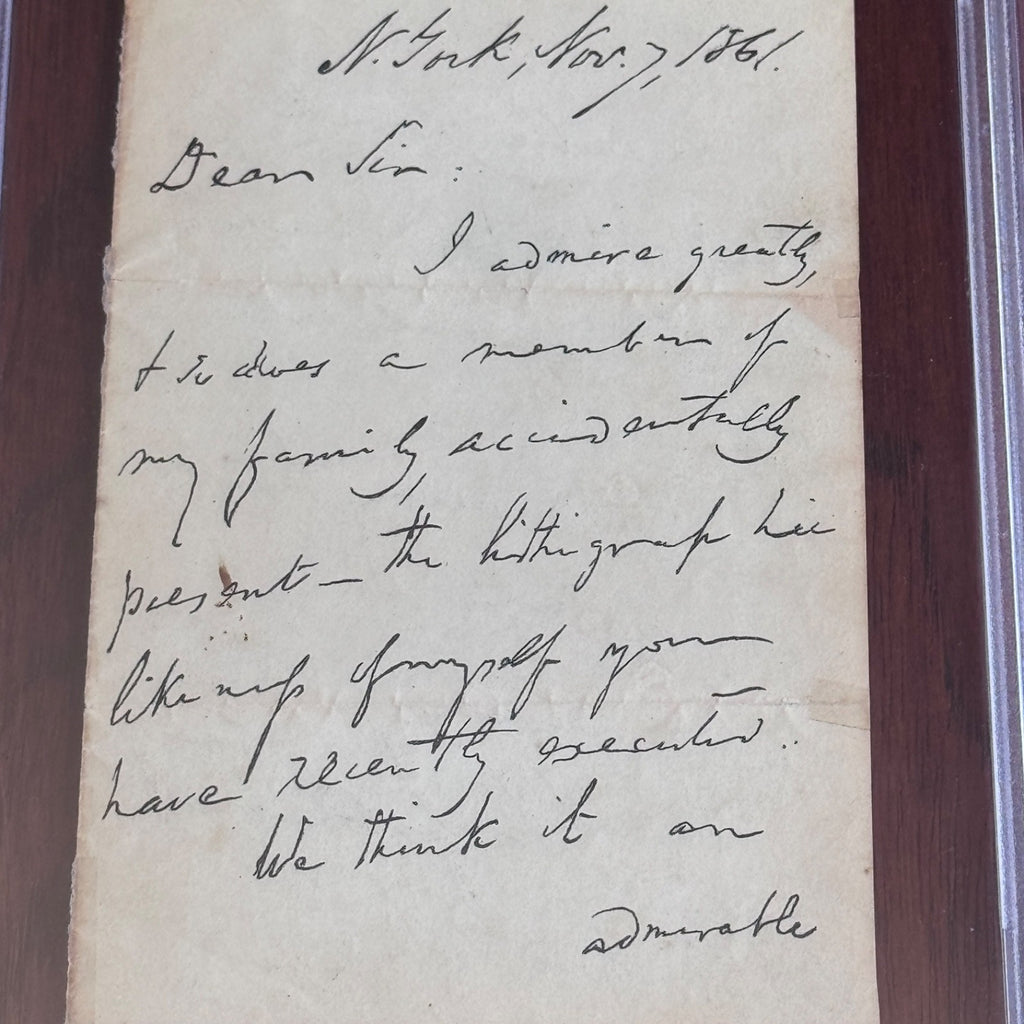 N. York, Nov. 7, 1861.
Dear Sir:
I admire greatly,
& so does a member of
my family, accidentally
present — the lithograph
likeness of myself you
have recently executed.
We think it an
admirable